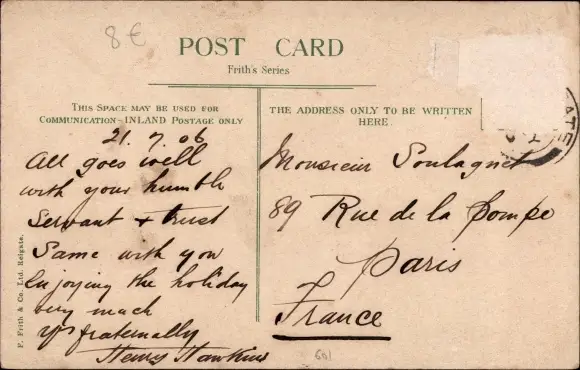 8 €
POST CARD
Frith's Series
THIS SPACE MAY BE USED FOR
COMMUNICATION-INLAND POSTAGE ONLY
THE ADDRESS ONLY TO BE WRITTEN
HERE.
21. 7. 06
All goes well
with your humble
Servant & trust
Same with you
Enjoying the holiday
very much
Yrs fraternally
Henry Hawkins
Monsieur Soulagnet
89 Rue de la Pompe
Paris
France
F. Frith & Co. Ltd. Reigate.